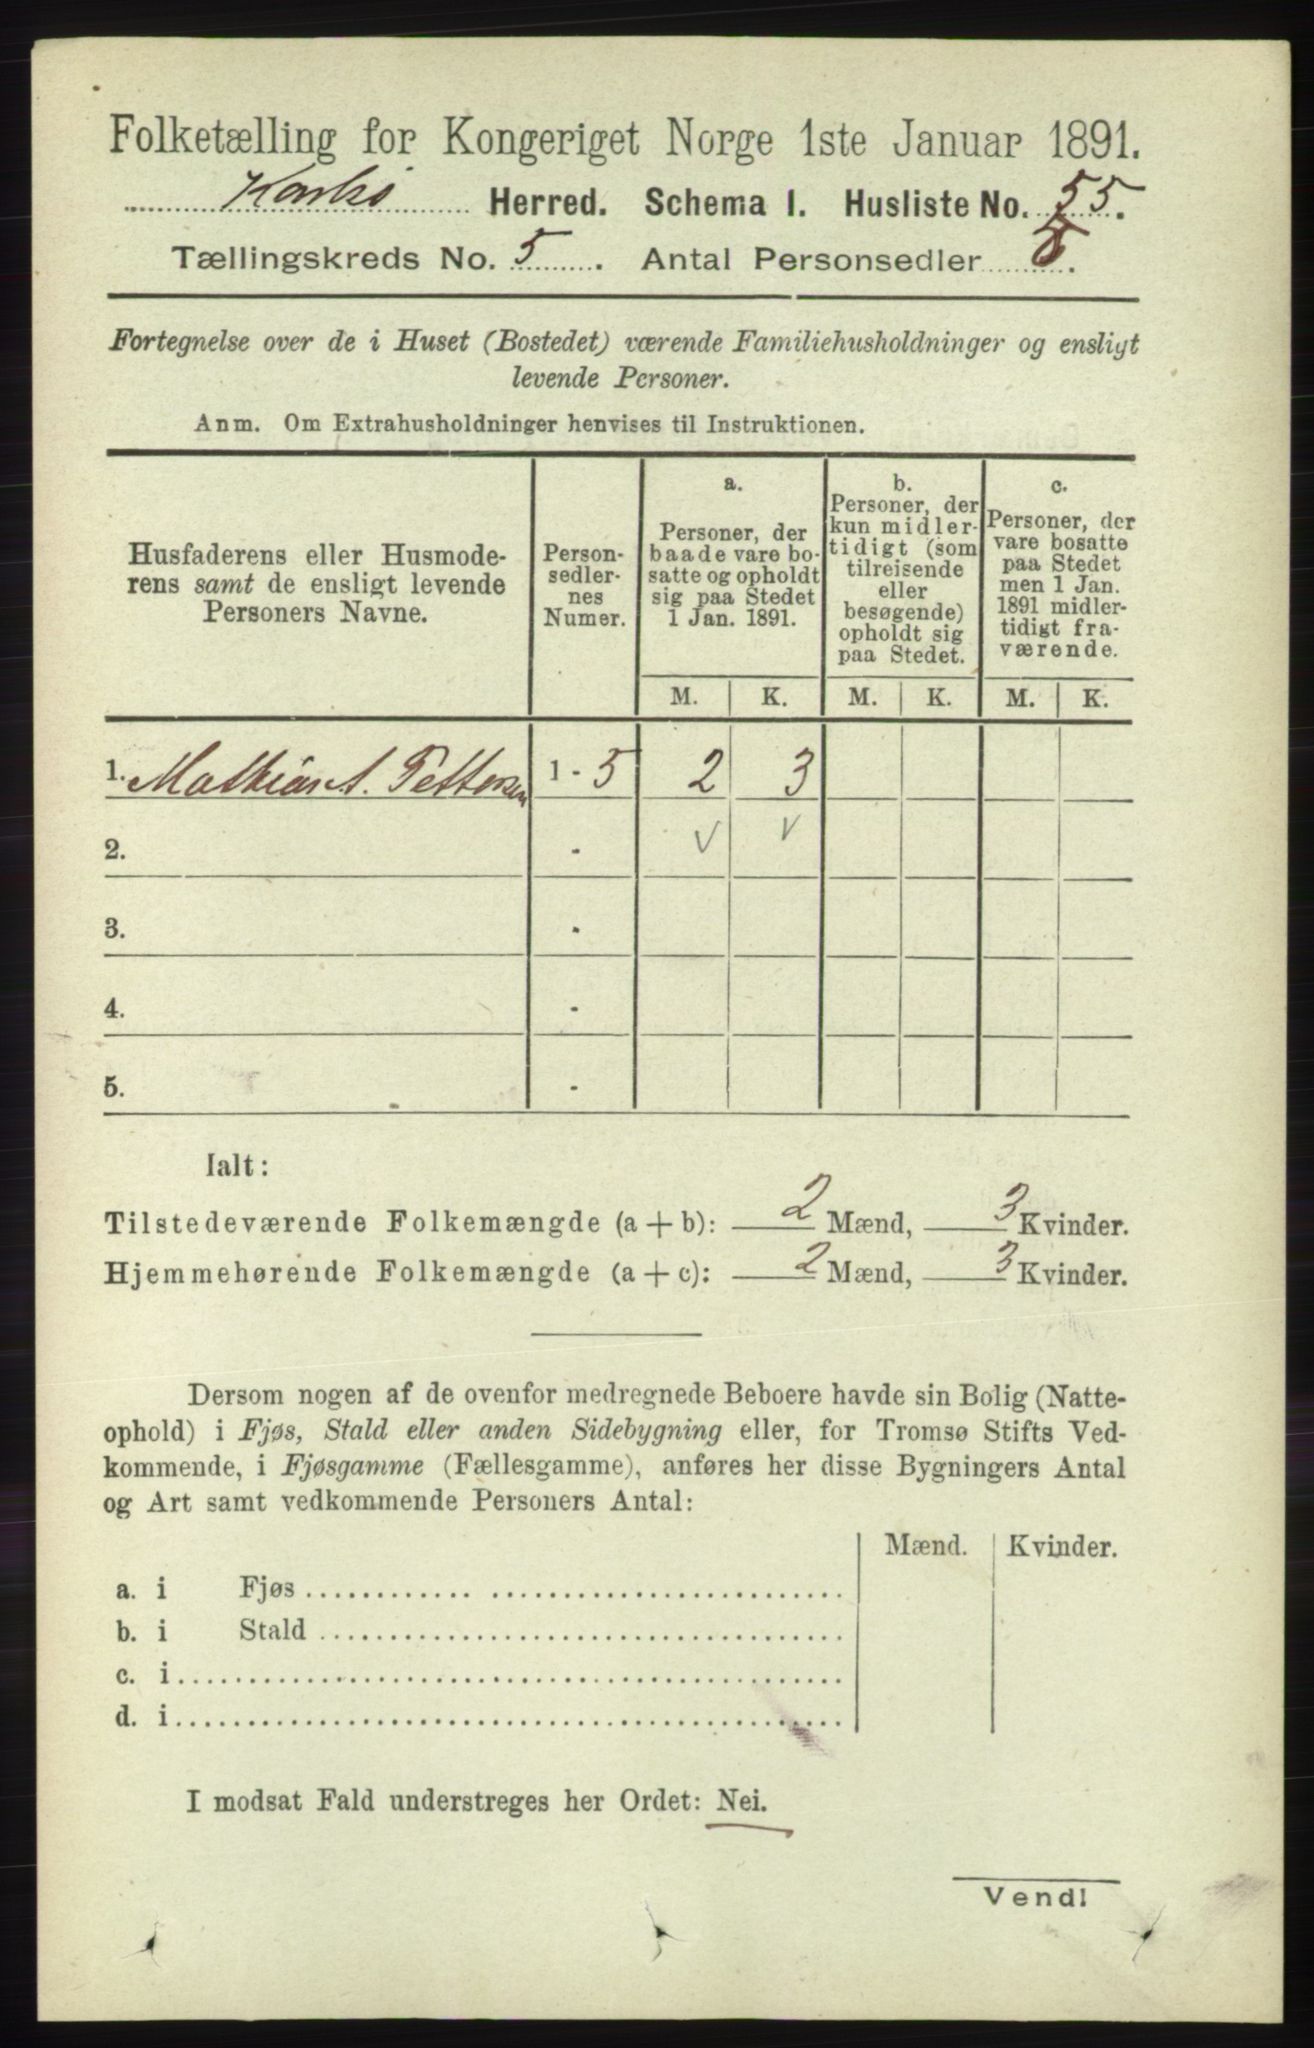 Folketælling for Kongeriget Norge 1ste Januar 1891.
Herred. Schema I. Husliste No. 55.
Tællingskreds No. 5. Antal Personsedler 5.
Fortegnelse over de i Huset (Bostedet) værende Familiehusholdninger og ensligt
levende Personer.
Anm. Om Extrahusholdninger henvises til Instruktionen.
Husfaderens eller Husmode-
rens samt de ensligt levende
Personers Navne.
Person-
sedler-
nes
Numer.
a.
Personer, der
baade vare bo-
satte og opholdt
sig paa Stedet
1 Jan. 1891.
b.
Personer, der
kun midler-
tidigt (som
tilreisende
eller
besøgende)
opholdt sig
paa Stedet.
c.
Personer, der
vare bosatte
paa Stedet
men 1 Jan.
1891 midler-
tidigt fra-
værende.
M. K. M. K. M. K.
1. Mathias A. Pettersen 1 - 5 2 3
2. - V V
3. -
4. -
5. -
Ialt:
Tilstedeværende Folkemængde (a + b): 2 Mænd, 3 Kvinder.
Hjemmehørende Folkemængde (a + c): 2 Mænd, 3 Kvinder.
Dersom nogen af de ovenfor medregnede Beboere havde sin Bolig (Natte-
ophold) i Fjøs, Stald eller anden Sidebygning eller, for Tromsø Stifts Ved-
kommende, i Fjøsgamme (Fællesgamme), anføres her disse Bygningers Antal
og Art samt vedkommende Personers Antal:
Mænd. Kvinder.
a. i Fjøs
b. i Stald
c. i
d. i
I modsat Fald understreges her Ordet: Nei.
Vend!